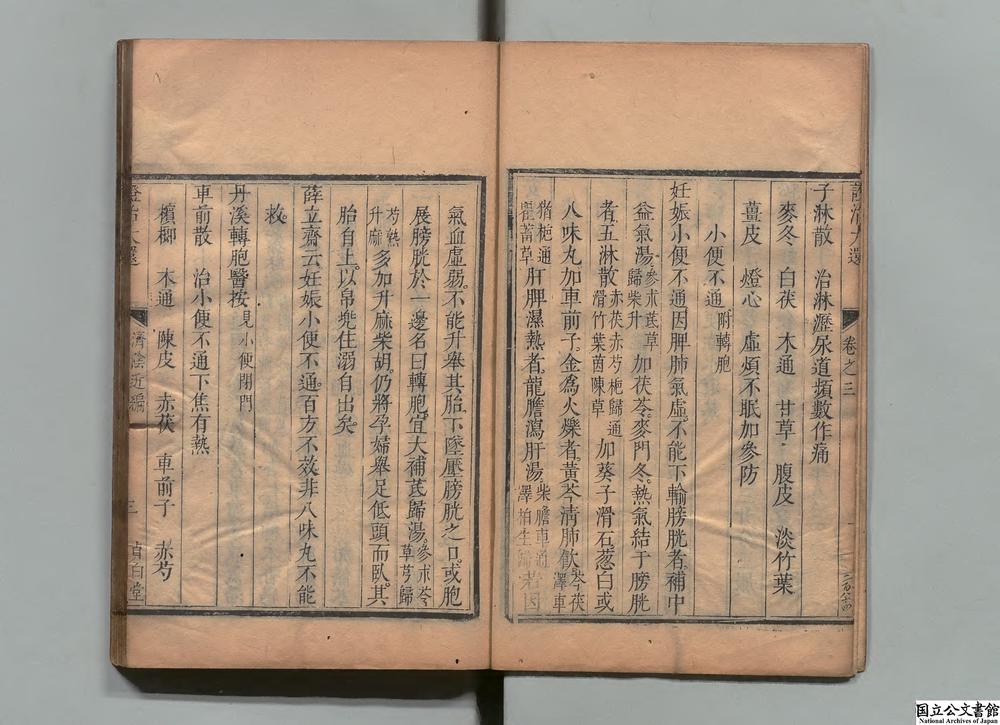 證治大還
卷之三
子淋散　治淋瀝尿道頻數作痛
麥冬　白茯　木通　甘草　腹皮　淡竹葉
薑皮　燈心　虛煩不眠加參防
小便不通附轉胞
妊娠小便不通因脾肺氣虛。不能下輸膀胱者。補中
益氣湯。參朮茋草歸柴升加茯苓。麥門冬。熱氣結于膀胱
者。五淋散。赤茯赤芍梔歸通滑竹葉茵陳草加葵子滑石葱白或
八味丸加車前子。金爲火爍者。黃芩淸肺飮。芩茯澤車
猪梔通瞿萹草肝脾濕熱者。龍膽瀉肝湯。柴膽車通澤柏生歸　若因
氣血虛弱。不能升舉其胎。下墜壓膀胱之口。或胞
展膀胱於一邊名曰轉胞。宜大補茋歸湯。參朮苓草芎歸
芍熟升麻多加升麻柴胡。仍將孕婦舉足低頭而臥。其
胎自上。以帛兜住溺自出矣。
薛立齋云妊娠小便不通。百方不效非八味丸不能
救。
丹溪轉胞醫按見小便閉門
車前散　治小便不通下焦有熱
檳榔　木通　陳皮　赤茯　車前子　赤芍
證治大還
濟陰近編
三
貞白堂
国立公文書館
National Archives of Japan